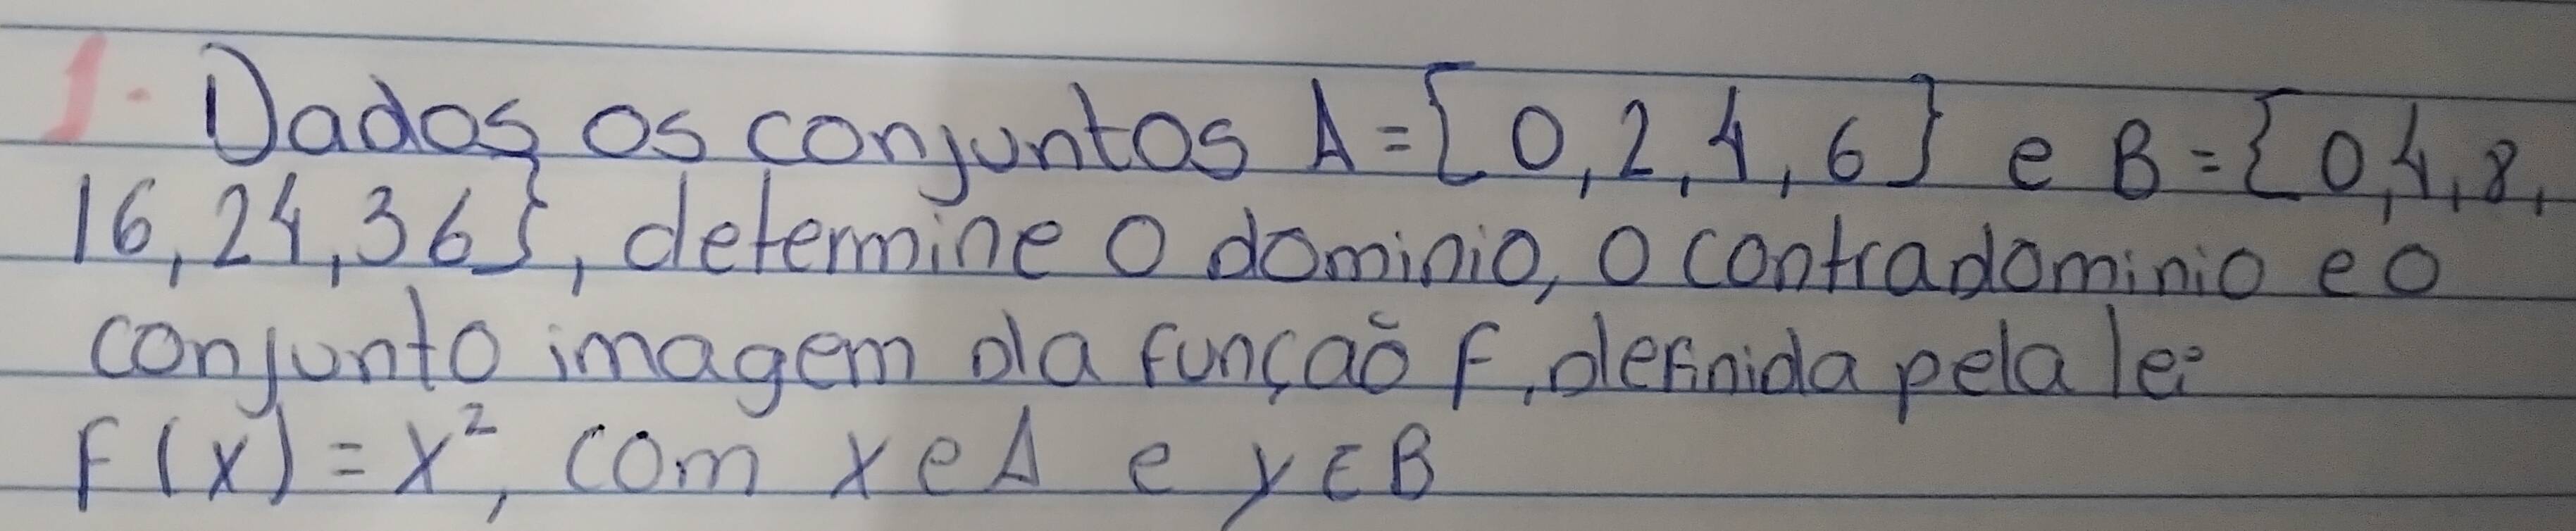 1- Dados os conjuntos A={0,2,4,6} e B={0,4,8,
16,24,36}, determine o dominio, o contradominio e o
conjunto imagem da função f, definida pela lei
F(x)=x², com x e A e y ∈ B